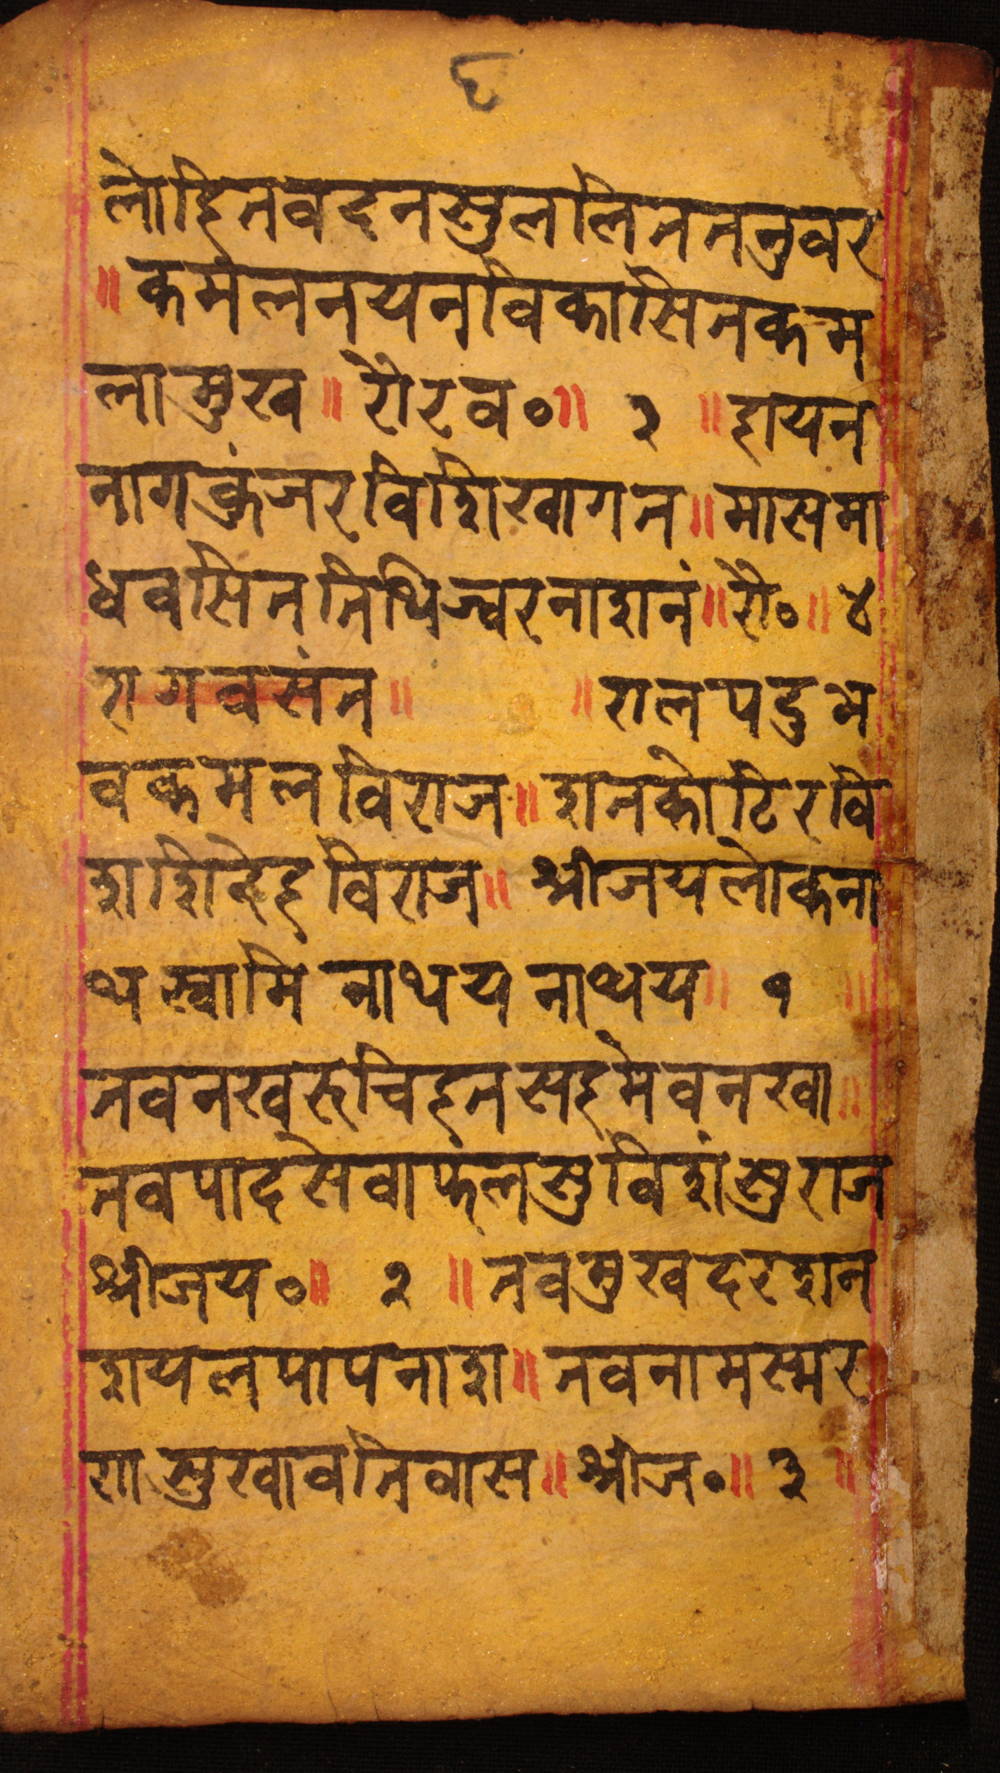 ६
लोहितवदनसुललिततनुवर
॥ कमलनयनविकासितकम
लामुख ॥ रौरव० ॥ ३ ॥ हायन
नागकुंजरविशिखागत ॥ मासमा
धवसिततिथिज्वरनाशनं ॥ रौ० ॥ ४
रागवसंत ॥ ॥ रालपदुभ
वकमलविराज ॥ शतकोटिरवि
शशिदेहविराज ॥ श्रीजयलोकना
थस्वामि नाथय नाथय ॥ १ ॥
नवनखरुचिहतसहमेवनखा ॥
तवपादसेवाफलसुविशंसुराज
श्रीजय० ॥ २ ॥ तवमुखदरशन
शयलपापनाश ॥ तवनामस्मर
णसुखावतिवास ॥ श्रीज० ॥ ३ ॥